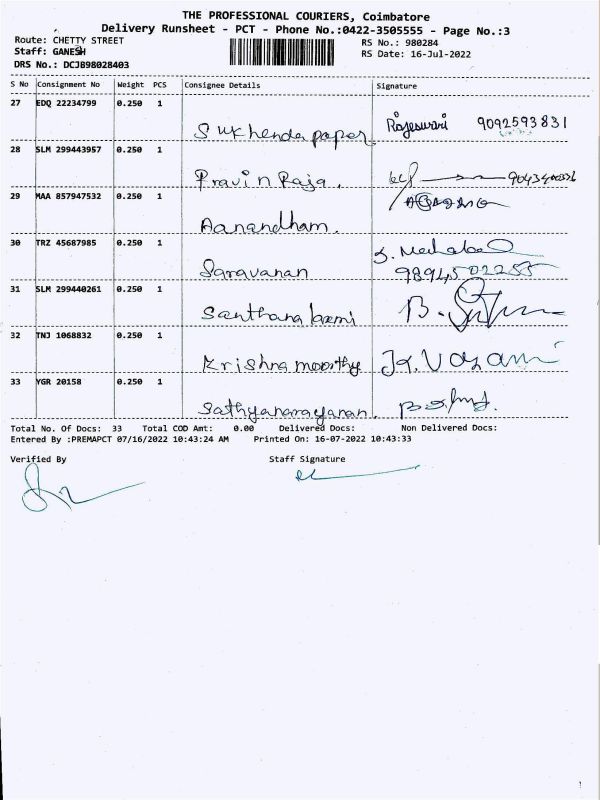 THE PROFESSIONAL COURIERS, Coimbatore
Delivery Runsheet - PCT - Phone No.:0422-3505555 - Page No.:3
Route: CHETTY STREET
RS No.: 980284
Staff: GANESH
RS Date: 16-Jul-2022
DRS No.: DCJB98028403
S No Consignment No Weight PCS Consignee Details Signature
27 EDQ 22234799 0.250 1
Sukhenda paper Rajeswari 9092593831
28 SLM 299443957 0.250 1
Pravin Raja.
29 MAA 857947532 0.250 1
Aanandham.
30 TRZ 45687985 0.250 1
Saravanan
31 SLM 299440261 0.250 1
Santhana laxmi
32 TNJ 1068832 0.250 1
Krishna moorthy
33 YGR 20158 0.250 1
Sathyanarayanan.
Total No. Of Docs: 33 Total COD Amt: 0.00 Delivered Docs: Non Delivered Docs:
Entered By :PREMAPCT 07/16/2022 10:43:24 AM Printed On: 16-07-2022 10:43:33
Verified By Staff Signature